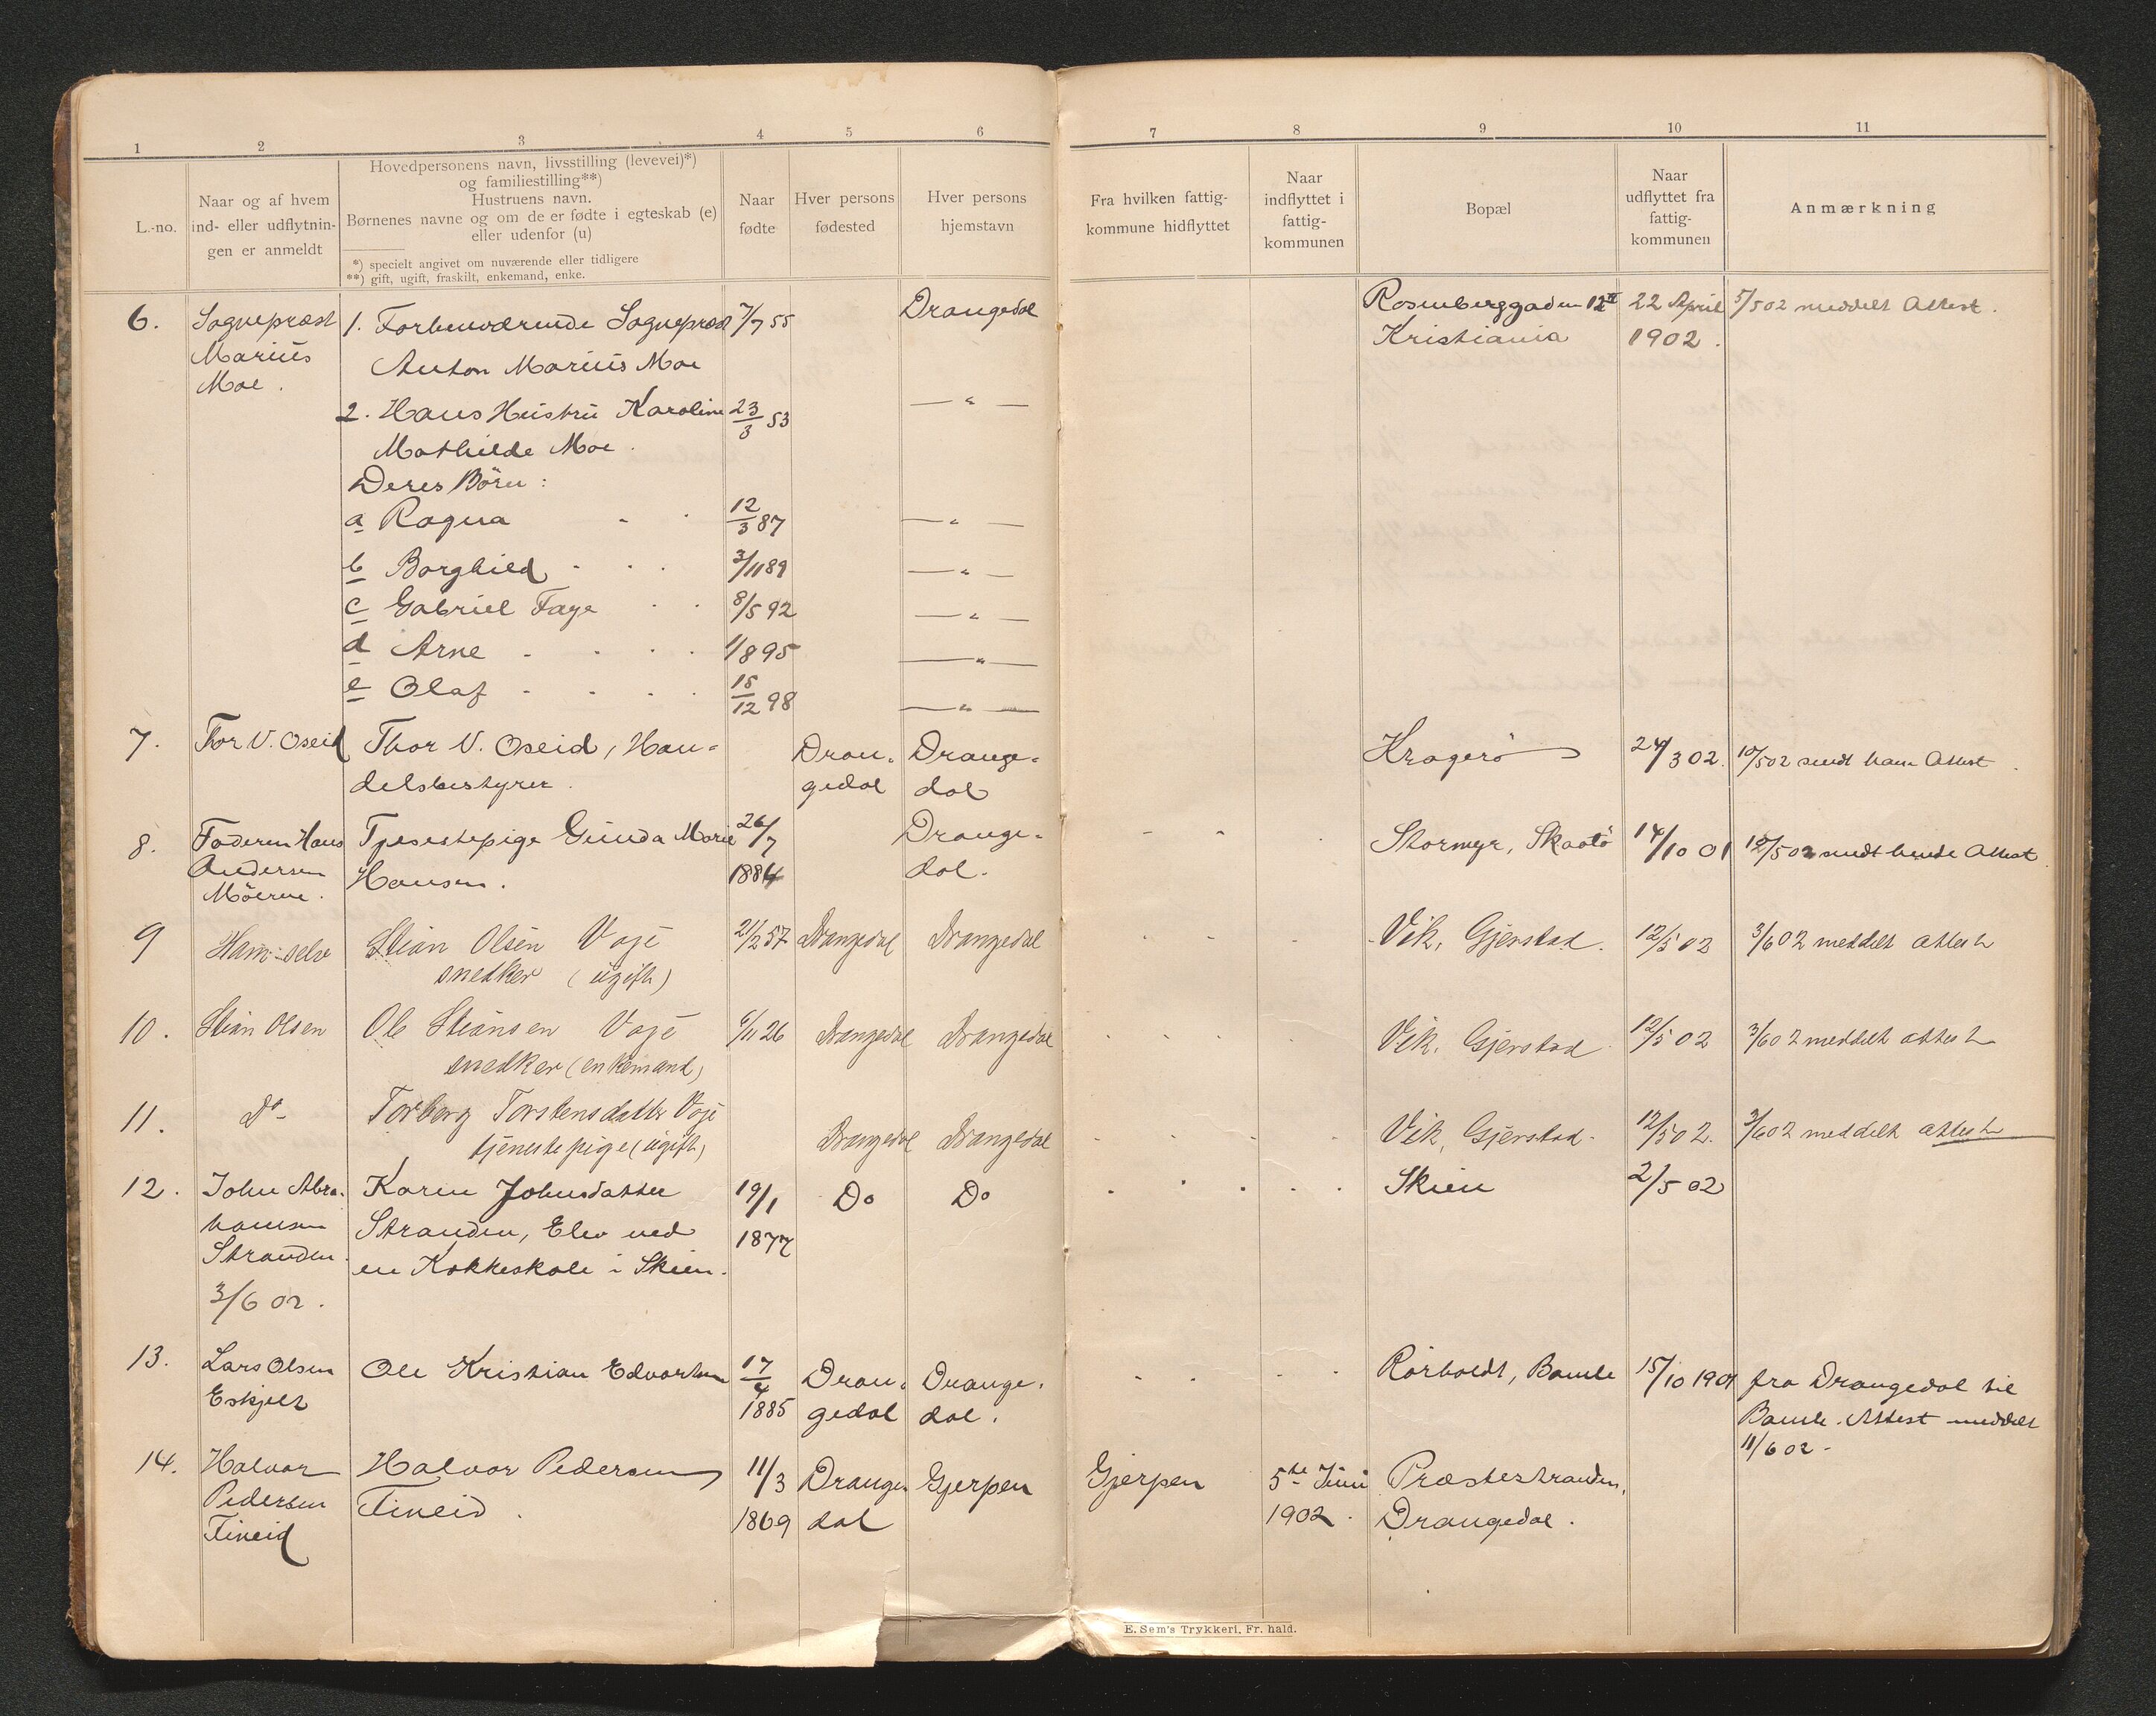 1 2 3 4 5 6 7 8 9 10 11
L.-no.
Naar og af hvem
ind- eller udflytnin-
gen er anmeldt
Hovedpersonens navn, livsstilling (levevei)*)
og familiestilling**)
Hustruens navn.
Børnenes navne og om de er fødte i egteskab (e)
eller udenfor (u)
*) specielt angivet om nuværende eller tidligere
**) gift, ugift, fraskilt, enkemand, enke.
Naar
fødte
Hver persons
fødested
Hver persons
hjemstavn
Fra hvilken fattig-
kommune hidflyttet
Naar
indflyttet i
fattig-
kommunen
Bopæl
Naar
udflyttet fra
fattig-
kommunen
Anmærkning
6. Sognepræst 1. Forhenværende Sognepræst 7/7 55 Drangedal Rosenberggaden 12 II 22 April 5/5 02 meddelt Attest.
Marius Anton Marius Moe Kristiania 1902.
Moe.
2. Hans Hustru Karoline 23/3 53 — " —
Mathilde Moe.
Deres Börn:
a Ragna 12/3 87 — " —
b Borghild 3/11 89 — " —
c Gabriel Faye 8/5 92 — " —
d Arne 1/8 95 — " —
e Olaf 15/12 98 — " —
7. Thor V. Oseid Thor V. Oseid, Han- Dran- Drange- Kragerö 24/3 02. 10/5 02 sendt ham Attest.
delsbestyrer. gedal dal
8. Faderen Hans Tjenestepige Gunda Marie 26/7 Drange- Stormyr, Skaatö 14/10 01 12/5 02 sendt hende Attest.
Andersen Hansen. 1884 dal.
Möerne.
9 Ham selv Stian Olsen Voje 21/2 57 Drangedal Drangedal Vik, Gjerstad. 12/5 02 3/6 02 meddelt attest
snedker (ugift)
10. Stian Olsen Ole Stiansen Voje 6/11 26 Drangedal Drangedal Vik, Gjerstad 12/5 02 3/6 02 meddelt attest
snedker (enkemand)
11. Do Torberg Torstensdatter Voje Drangedal Drangedal Vik, Gjerstad. 12/5 02. 3/6 02 meddelt attest
tjenestepige (ugift)
12. John Abra- Karen Johnsdatter 19/1 Do Do Skien 2/5 02
hamsen Stranden, Elev ved 1877
Stranden. en Kokkeskole i Skien.
3/6 02.
13. Lars Olsen Ole Kristian Edvartsen 17/4 Dran- Drange- Rörholdt, Bamle 15/10 1901 fra Drangedal til
Eskjelt 1885 gedal dal. Bamle. Attest meddelt
11/6 02-
14. Halvor Halvor Pedersen 11/3 Drange- Gjerpen Gjerpen 5te Juni Præstestranden,
Pedersen Tineid. 1869 dal 1902. Drangedal.
Tineid
E. Sem's Trykkeri, Fr. hald.